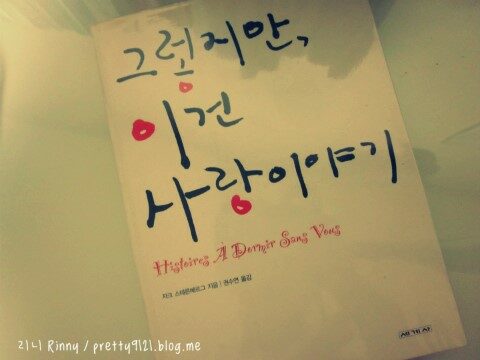 그렇지만,
이건
사랑이야기
Histoires À Dormir Sans Vous
자크 스테른베르그 지음 | 권수연 옮김
세계사
리니 Rinny / pretty9121.blog.me